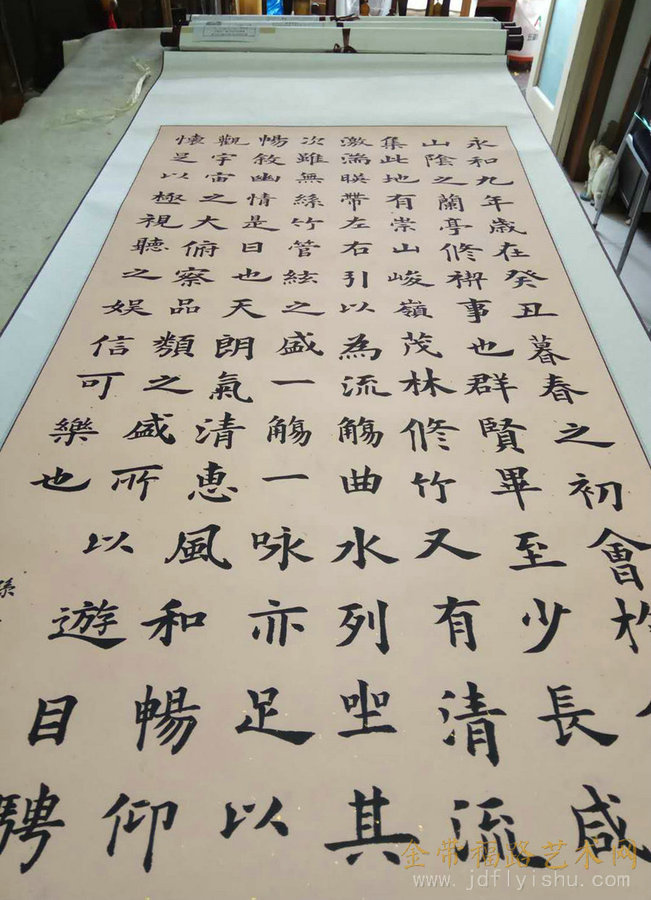 永和九年歲在癸丑暮春之初會
山陰之蘭亭修禊事也群賢畢至少長咸
集此地有崇山峻嶺茂林修竹又有清流
激湍暎帶左右引以為流觴曲水列坐其
次雖無絲竹管絃之盛一觴一咏亦足以
暢敘幽情是日也天朗氣清惠風和暢仰
觀宇宙之大俯察品類之盛所以遊目騁
懷足以極視聽之娛信可樂也
孫
金带福路艺术网
www.jdflyishu.com